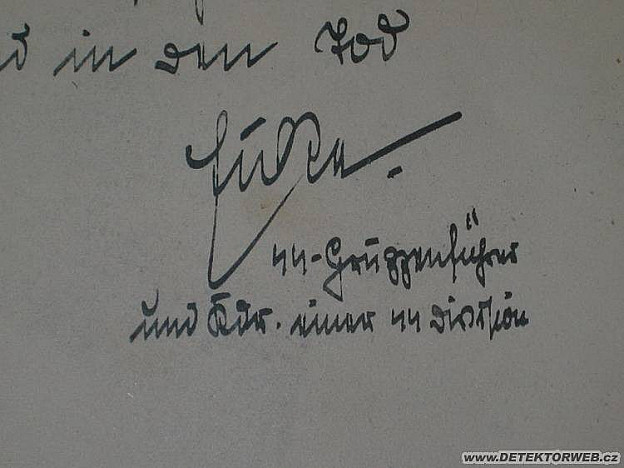 in den Tod
Eicke.
SS-Gruppenführer
und Kdr. einer SS Division
www.DETEKTORWEB.cz